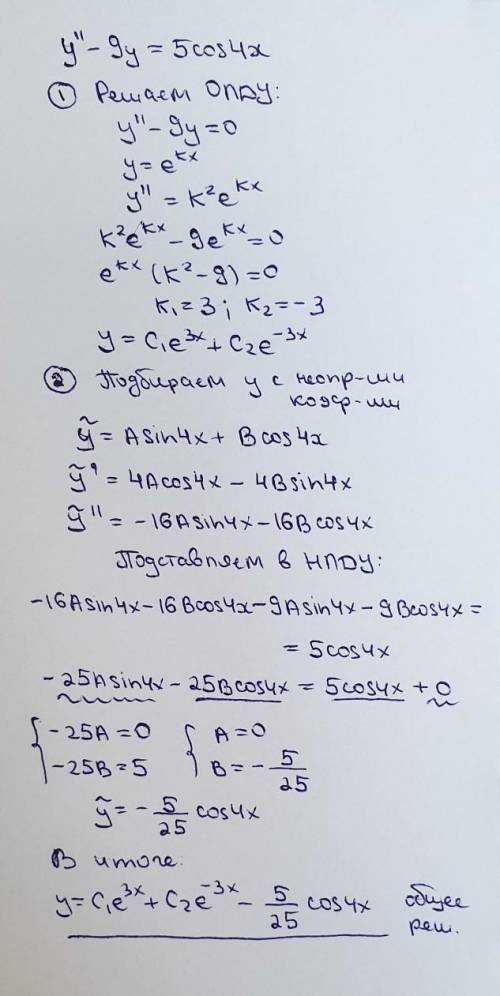 y'' - 9y = 5cos4x
① Решаем ОПДУ:
y'' - 9y = 0
y = e^{kx}
y'' = k²e^{kx}
k²e^{kx} - 9e^{kx} = 0
e^{kx}(k² - 9) = 0
k₁ = 3; k₂ = -3
y = C₁e^{3x} + C₂e^{-3x}
② Подбираем y с неопр-ми
коэф-ми
ỹ = Asin4x + Bcos4x
ỹ' = 4Acos4x - 4Bsin4x
ỹ'' = -16Asin4x - 16Bcos4x
Подставляем в НПДУ:
-16Asin4x - 16Bcos4x - 9Asin4x - 9Bcos4x =
= 5cos4x
-25Asin4x - 25Bcos4x = 5cos4x + 0
{ -25A = 0 { A = 0
{ -25B = 5 { B = -5/25
ỹ = -5/25 cos4x
В итоге:
y = C₁e^{3x} + C₂e^{-3x} - 5/25 cos4x общее
реш.